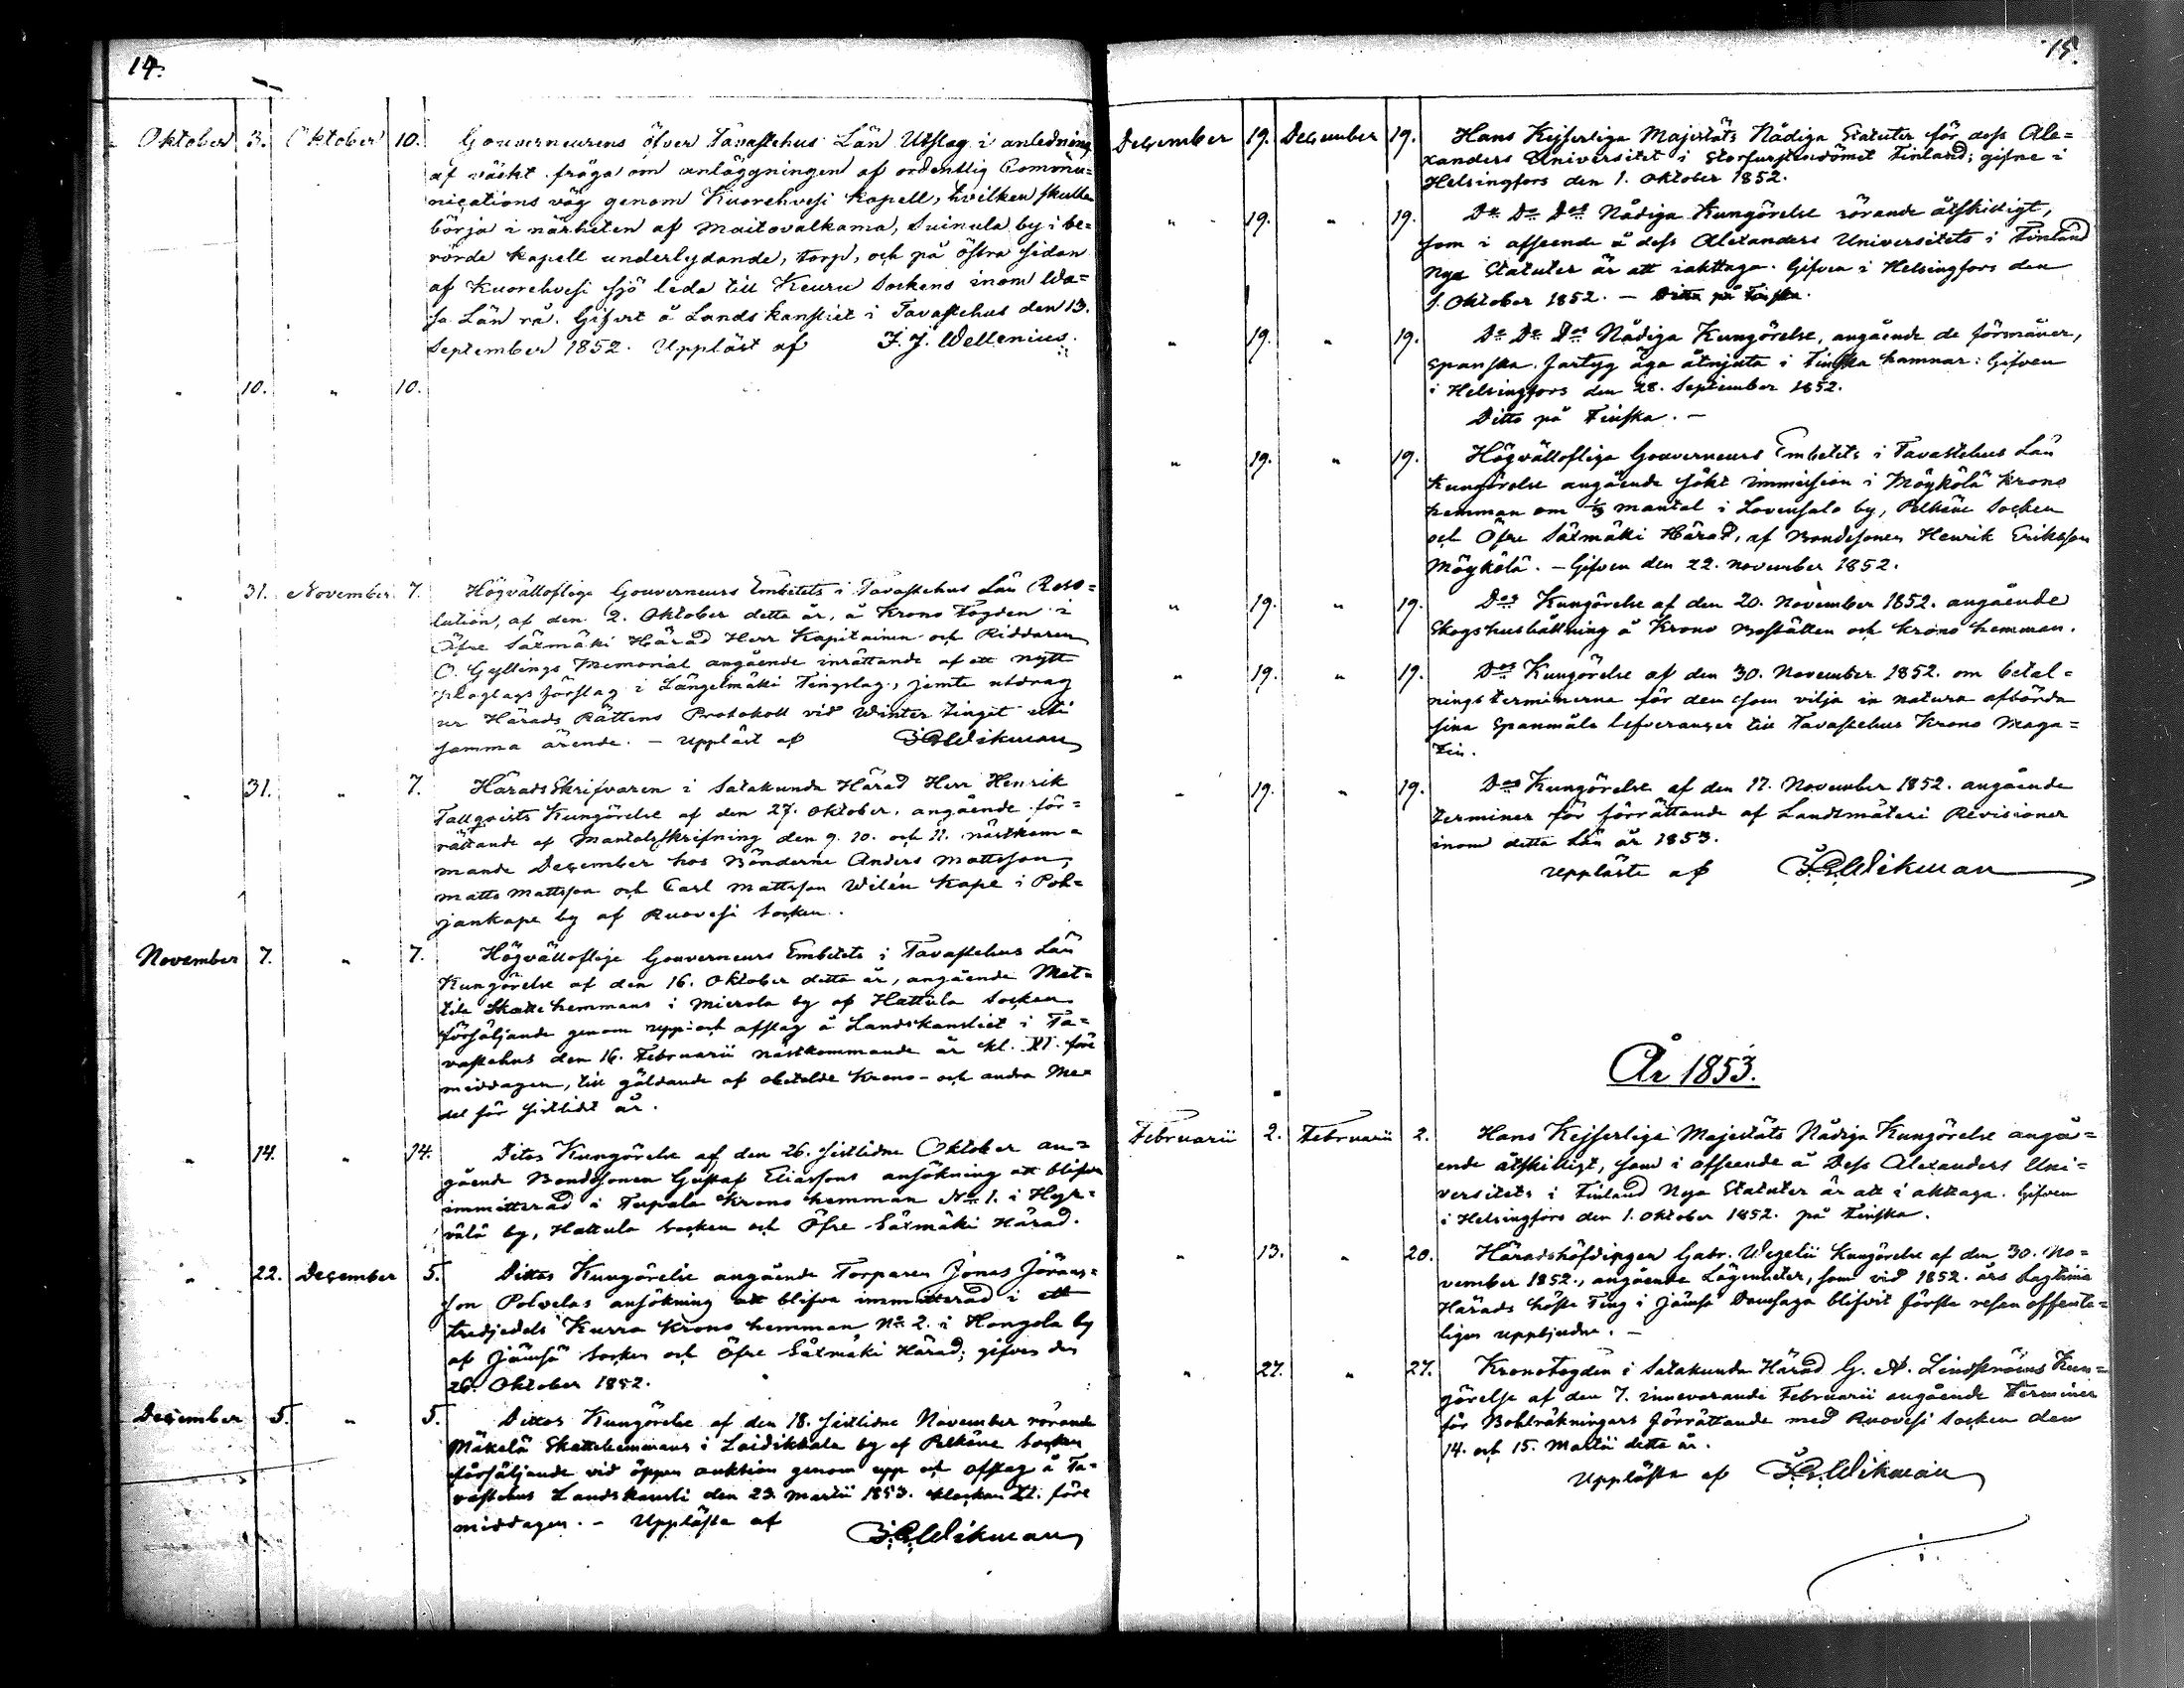 14.
Oktober 3. Oktober 10. Gouverneurens öfver Tavastehus Län Utslag i anledning
af väckt fråga om anläggningen af ordentlig Commu=
nications väg genom Kuorehvesi kapell, hvilken skulle
börja i närheten af Maitovalkama, Suinula by i be=
rörde kapell underlydande, torp, och på östra sidan
af Kuorehvesi sjö leda till Keuru Sockens inom Wa=
sa Län rå. Gifvet å Lands kansliet i Tavastehus den 13.
September 1852. Uppläst af F. J. Wellenius.
" 10. " 10.
" 31. November 7. Högvälloflige Gouverneurs Embetets i Tavastehus Län Reso=
lution, af den 2. Oktober detta år, å Krono Fogden i
Öfre Säxmäki Härad Herr Kapitainen och Riddaren
O. Gyllings Memorial angående inrättande af ett nytt
förslag i Längelmäki Tingslag, jemte utdrag
ur Härads Rättens Protokoll vid Winter tinget uti
samma ärende. – Uppläst af Wikman
" 31. " 7. HäradsSkrifvaren i Satakunda Härad Herr Henrik
Tallqvists Kungörelse af den 27. Oktober, angående för=
rättande af Mantalsskrifning den 9. 10. och 11. nästkom=
mande December hos Bönderne Anders Mattsson,
Matts Mattsson och Carl Mattsson Wilén Kape i Poh=
jankape by af Ruovesi Socken.
November 7. " 7. Högvälloflige Gouverneurs Embetets i Tavastehus Län
Kungörelse af den 16. Oktober detta år, angående Mat=
tila Skatte hemmans i Mierola by af Hattula Socken
försäljande genom upp- och afslag å Landskansliet i Ta=
vastehus den 16. Februarii nästkommande år kl. XI. före
middagen, till gäldande af obetalde Krono- och andra Me=
del för sistlidt år.
" 14. " 14. Ditos Kungörelse af den 26. sistlidne Oktober an=
gående Bondsonen Gustaf Eliassons ansökning att blifva
immitterad i Tupala Krono hemman No 1. i Hyr=
välä by, Hattula Socken och Öfre Säxmäki Härad.
" 22. December 5. Dittos Kungörelse angående Torparen Jonas Jöräns=
son Polvelas ansökning att blifva immitterad i ett
tredjedels Kurra Krono hemman No 2. i Hongola by
af Jämsä Socken och Öfre Säxmäki Härad; gifven den
26. Oktober 1852.
December 5. " 5. Dittos Kungörelse af den 18. sistlidne November rörande
Mäkelä Skattehemmans i Laidikkala by af Pelkäne Socken
försäljande vid öppen auktion genom upp och afslag å Ta=
vastehus Landskansli den 23. Martii 1853. klockan XI. före
middagen. – Upplästa af Wikman
15.
December 19. December 19. Hans Kejserliga Majestäts Nådiga Statuter för dess Ale=
xanders Universitet i Storfurstendömet Finland; gifne i
Helsingfors den 1. Oktober 1852.
" 19. " 19. Do Do Dos Nådiga Kungörelse rörande åtskilligt,
som i afseende å dess Alexanders Universitets i Finland
nya Statuter är att iakttaga. Gifven i Helsingfors den
1. Oktober 1852. – Ditto på Finska.
" 19. " 19. Do Do Dos Nådiga Kungörelse, angående de förmåner,
Spanska fartyg äga åtnjuta i Finska hamnar: Gifven
i Helsingfors den 28. September 1852.
Ditto på Finska. –
" 19. " 19. Högvälloflige Gouverneurs Embetets i Tavastehus Län
Kungörelse angående sökt immission i Möykölä Krono
hemman om 1/3 mantal i Lovensalo by, Pelkäne Socken
och Öfre Säxmäki Härad, af Bondesonen Henrik Eriksson
Möykölä. – Gifven den 22. november 1852.
" 19. " 19. Dos Kungörelse af den 20. November 1852. angående
Skogshushållning å Krono Boställen och krono hemman.
" 19. " 19. Dos Kungörelse af den 30. November 1852. om betal=
nings terminerne för dem som vilja in natura afbörda
sina Spanmåls lefveranser till Tavastehus Krono Maga=
sin.
" 19. " 19. Dos Kungörelse af den 17. November 1852. angående
terminer för förrättande af Landtmäteri Revisioner
inom detta Län år 1853.
Upplästa af Wikman
År 1853.
Februarii 2. Februarii 2. Hans Kejserliga Majestäts Nådiga Kungörelse angå=
ende åtskilligt, som i afseende å Dess Alexanders Uni=
versitets i Finland Nya Statuter är att i akttaga. Gifven
i Helsingfors den 1. Oktober 1852. på Finska.
" 13. " 20. Häradshöfdingen Gabr. Wegelii Kungörelse af den 30. No=
vember 1852., angående Lägenheter, som vid 1852. års Lagtima
Härads höste Ting i Jämsä Domsaga blifvit första resan offente=
ligen uppbjudne. –
" 27. " 27. KronoFogden i Satakunda Härad G. A. Lindsnäus Kun=
görelse af den 7. innevarande Februarii angående Terminer
för Bohlräkningars förrättande med Ruovesi Socken den
14. och 15. Martii detta år.
Upplästa af Wikman